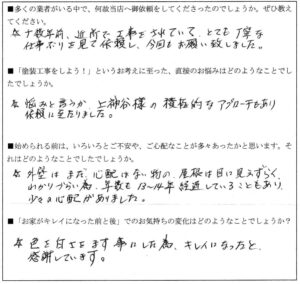 ■多くの業者がいる中で、何故当店へ御依頼をしてくださったのでしょうか。ぜひ教えてください。
A 十数年前、近所で工事をされていて、とても丁寧な
仕事ぶりを見て依頼し、今回もお願い致しました。
■「塗装工事をしよう！」というお考えに至った、直接のお悩みはどのようなことでしたでしょうか。
A 悩みと言うか、上神谷様の積極的なアプローチもあり
依頼に至たりました。
■始められる前は、いろいろとご不安や、ご心配なことが多々あったかと思います。それはどのようなことでしたでしょうか。
A 外壁はまだ、心配はない物の、屋根は目に見えずらく
わかりづらい為、年数も13〜14年経過していることもあり、
少々の心配がありました。
■「お家がキレイになった前と後」でのお気持ちの変化はどのようなことでしょうか？
A 色を
事にした為、キレイになったと、
感謝しています。